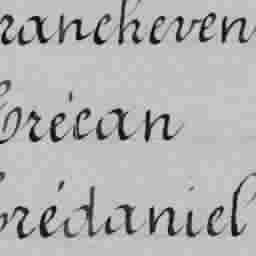 rancheven
Trécan
Trédaniel